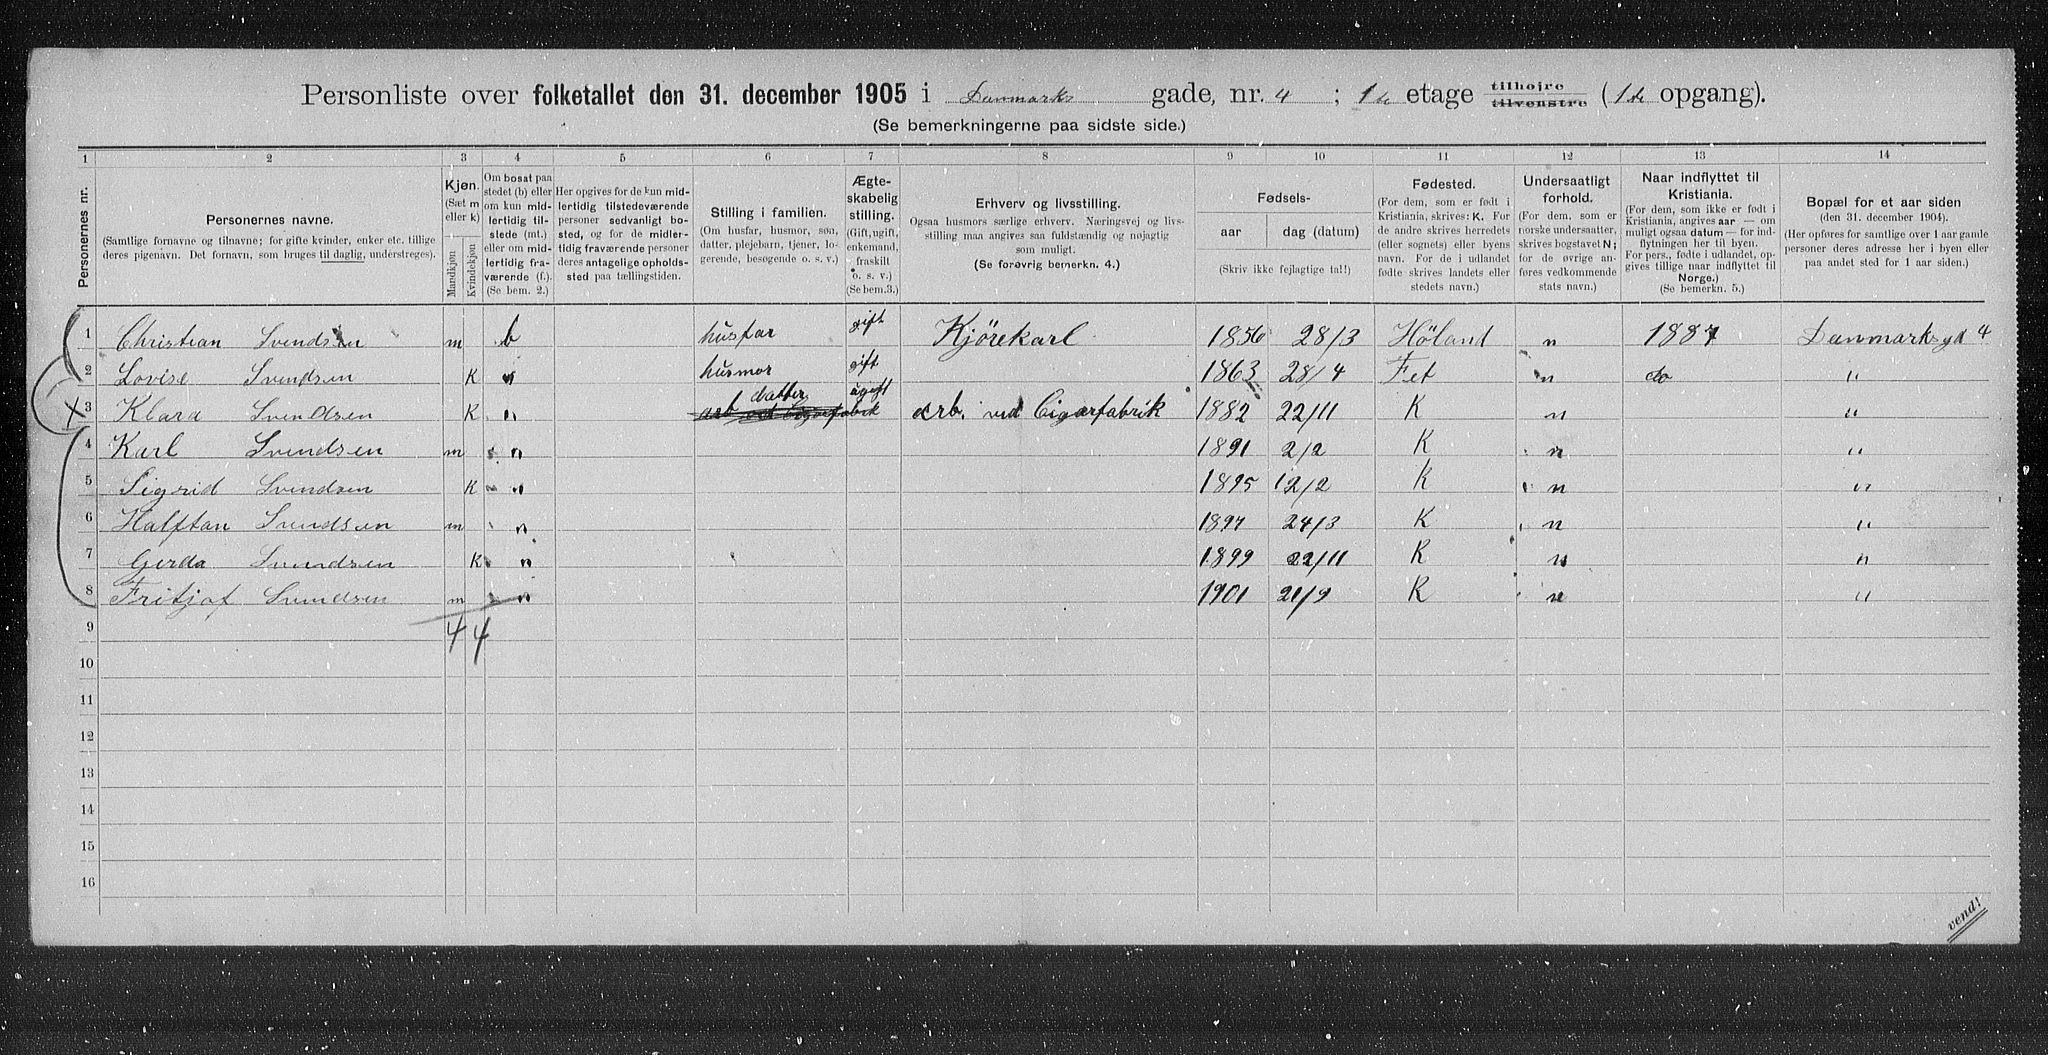 Personliste over folketallet den 31. december 1905 i Danmarks gade, nr. 4 ; 1ste etage tilhøjre tilvenstre (1ste opgang).
(Se bemerkningerne paa sidste side.)
1 2 3 4 5 6 7 8 9 10 11 12 13 14
Personernes nr.
Personernes navne.
(Samtlige fornavne og tilnavne; for gifte kvinder, enker etc. tillige
deres pigenavn. Det fornavn, som bruges til daglig, understreges).
Kjøn.
(Sæt m
eller k)
Mandkjøn
Kvindekjøn
Om bosat paa
stedet (b) eller
om kun mid-
lertidig til-
stede (mt.)
eller om mid-
lertidig fra-
værende (f.).
(Se bem. 2.)
Her opgives for de kun mid-
lertidig tilstedeværende
personer sedvanlig bo-
sted, og for de midler-
tidig fraværende personer
deres antagelige opholds-
sted paa tællingstiden.
Stilling i familien.
(Om husfar, husmor, søn,
datter, plejebarn, tjener, lo-
gerende, besøgende o. s. v.)
Ægte-
skabelig
stilling.
(Gift, ugift,
enkemand,
fraskilt
o. s. v.)
(Se bem. 3.)
Erhverv og livsstilling.
Ogsaa husmors særlige erhverv. Næringsvej og livs-
stilling maa angives saa fuldstændig og nøjagtig
som muligt.
(Se forøvrig bemerkn. 4.)
Fødsels-
aar dag (datum)
(Skriv ikke fejlagtige tal!)
Fødested.
(For dem, som er født i
Kristiania, skrives: K. For
de andre skrives herredets
(eller sognets) eller byens
navn. For de i udlandet
fødte skrives landets eller
stedets navn.)
Undersaatligt
forhold.
(For dem, som er
norske undersaatter,
skrives bogstavet N;
for de øvrige an-
føres vedkommende
stats navn.)
Naar indflyttet til
Kristiania.
(For dem, som ikke er født i
Kristiania, angives aar — om
muligt ogsaa datum — for ind-
flytningen her til byen.
For pers., fødte i udlandet, op-
gives tillige naar indflyttet til
Norge.)
(Se bemerkn. 5.)
Bopæl for et aar siden
(den 31. december 1904).
(Her opføres for samtlige over 1 aar gamle
personer deres adresse her i byen eller
paa andet sted for 1 aar siden.)
1 Christian Svendsen m b husfar gift Kjörekarl 1856 28/3 Höland n 1887 Danmarksgd 4
2 Lovise Svendsen K " husmor gift 1863 28/4 Fet n do "
3 Klara Svendsen K " datter ugift arb. ved Cigarfabrik 1882 22/11 K n "
arb ved Cigarfabrik
4 Karl Svendsen m " 1891 2/2 K n "
5 Sigrid Svendsen K " 1895 12/2 K n "
6 Halftan Svendsen m " 1897 24/3 K n "
7 Gerda Svendsen K " 1899 22/11 K n "
8 Fritjof Svendsen m " 1901 21/9 K n "
9 4 4
10
11
12
13
14
15
16
vend!